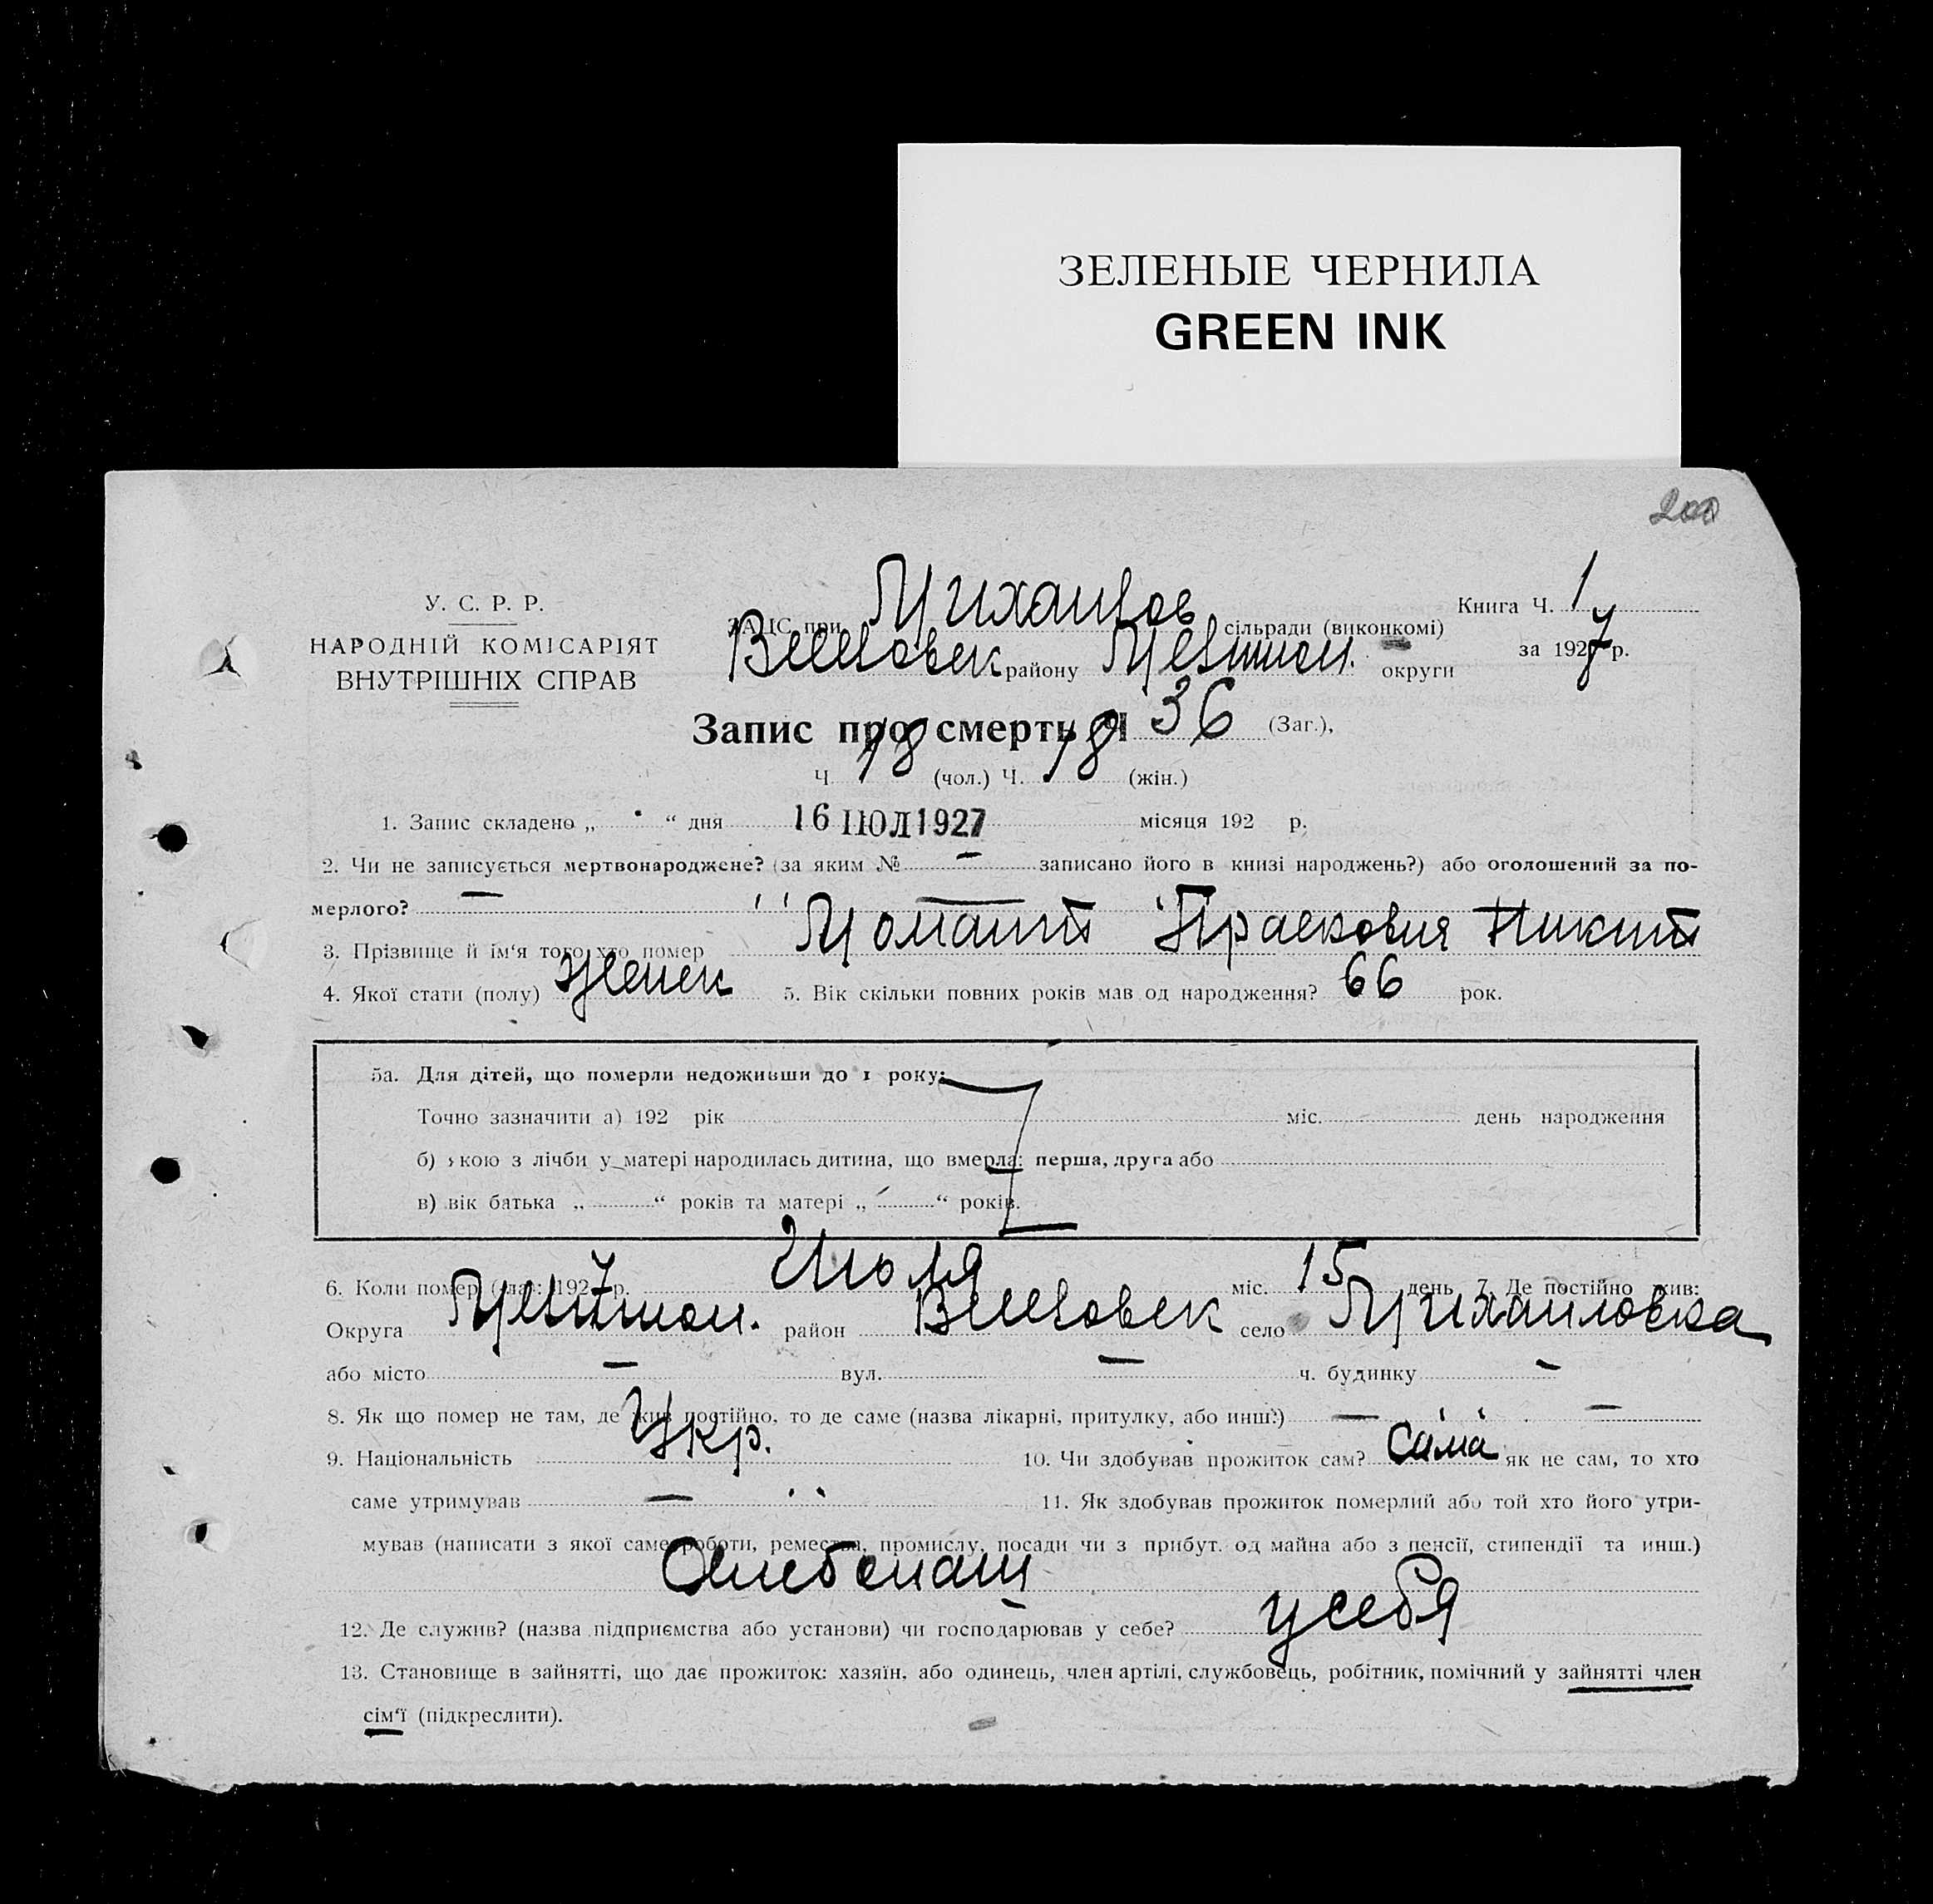 ЗЕЛЕНЫЕ ЧЕРНИЛА
GREEN INK
200
У. С. Р. Р.
НАРОДНІЙ КОМІСАРІЯТ
ВНУТРІШНІХ СПРАВ
ЗАЦС при Михайлов сільради (виконкомі)
району округи
Книга Ч. 1
за 1927 р.
Запис про смерть Ч 36 (Заг.),
Ч 18 (чол.) Ч. 18 (жін.)
1. Запис складено „ “ дня 16 ІЮЛ 1927 місяця 192 р.
2. Чи не записується мертвонароджене? (за яким № — записано його в книзі народжень?) або оголошений за по-
мерлого? —
3. Прізвище й ім‘я того хто помер Прасковия Никит
4. Якої стати (полу) женск 5. Вік скільки повних років мав од народження? 66 рок.
5а. Для дітей, що померли недоживши до 1 року:
Точно зазначити а) 192 рік міс. день народження
б) якою з лічби у матері народилась дитина, що вмерла: перша, друга або
в) вік батька „ “ років та матері „ “ років.
6. Коли помер (ла): 1927 р. Июля міс. 15 день 7. Де постійно жив:
Округа район село Михаиловка
або місто — вул. — ч. будинку —
8. Як що помер не там, де жив постійно, то де саме (назва лікарні, притулку, або инш.) — —
9. Національність Укр. 10. Чи здобував прожиток сам? Сама як не сам, то хто
саме утримував — 11. Як здобував прожиток померлий або той хто його утри-
мував (написати з якої саме роботи, ремества, промислу, посади чи з прибут. од майна або з пенсії, стипендії та инш.)
Хлебопаш
12. Де служив? (назва підприємства або установи) чи господарював у себе? у себя
13. Становище в зайнятті, що дає прожиток: хазяїн, або одинець, член артілі, службовець, робітник, помічний у зайнятті член
сім‘ї (підкреслити).